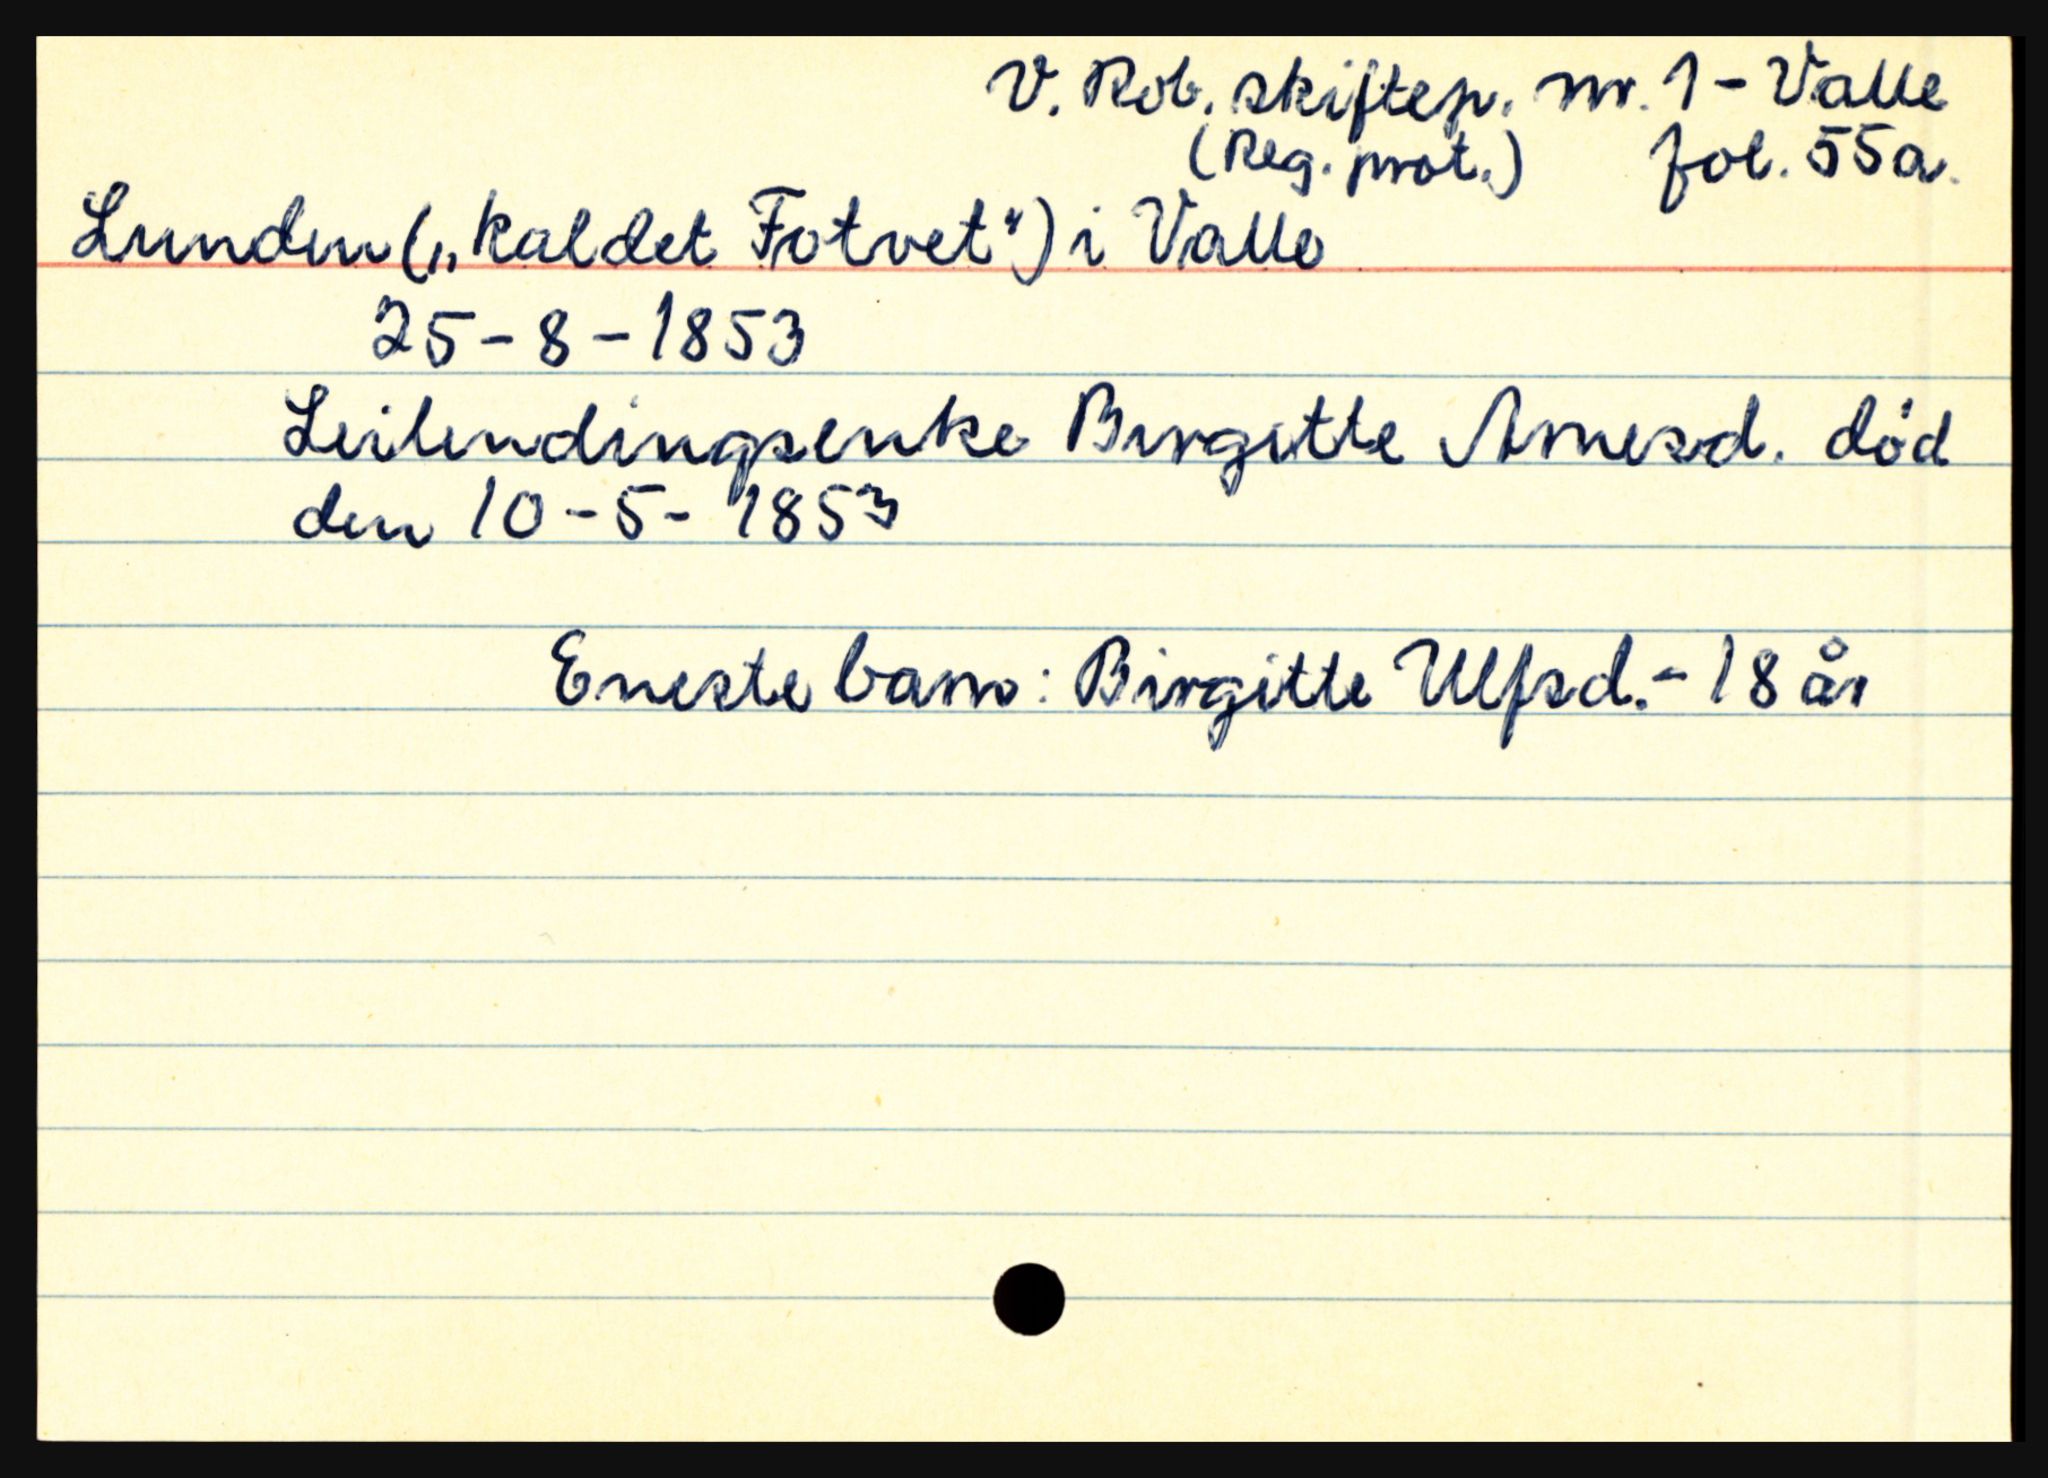 V. Rob. skiftep. nr. 1 - Valle
(Reg. prot.) fol. 55a.
Lunden („kaldet Fotvet“) i Valle
25-8-1853
Leilendingsenke Birgitte Arnesd. død
den 10-5-1853
Eneste barn: Birgitte Ulfsd. - 18 år